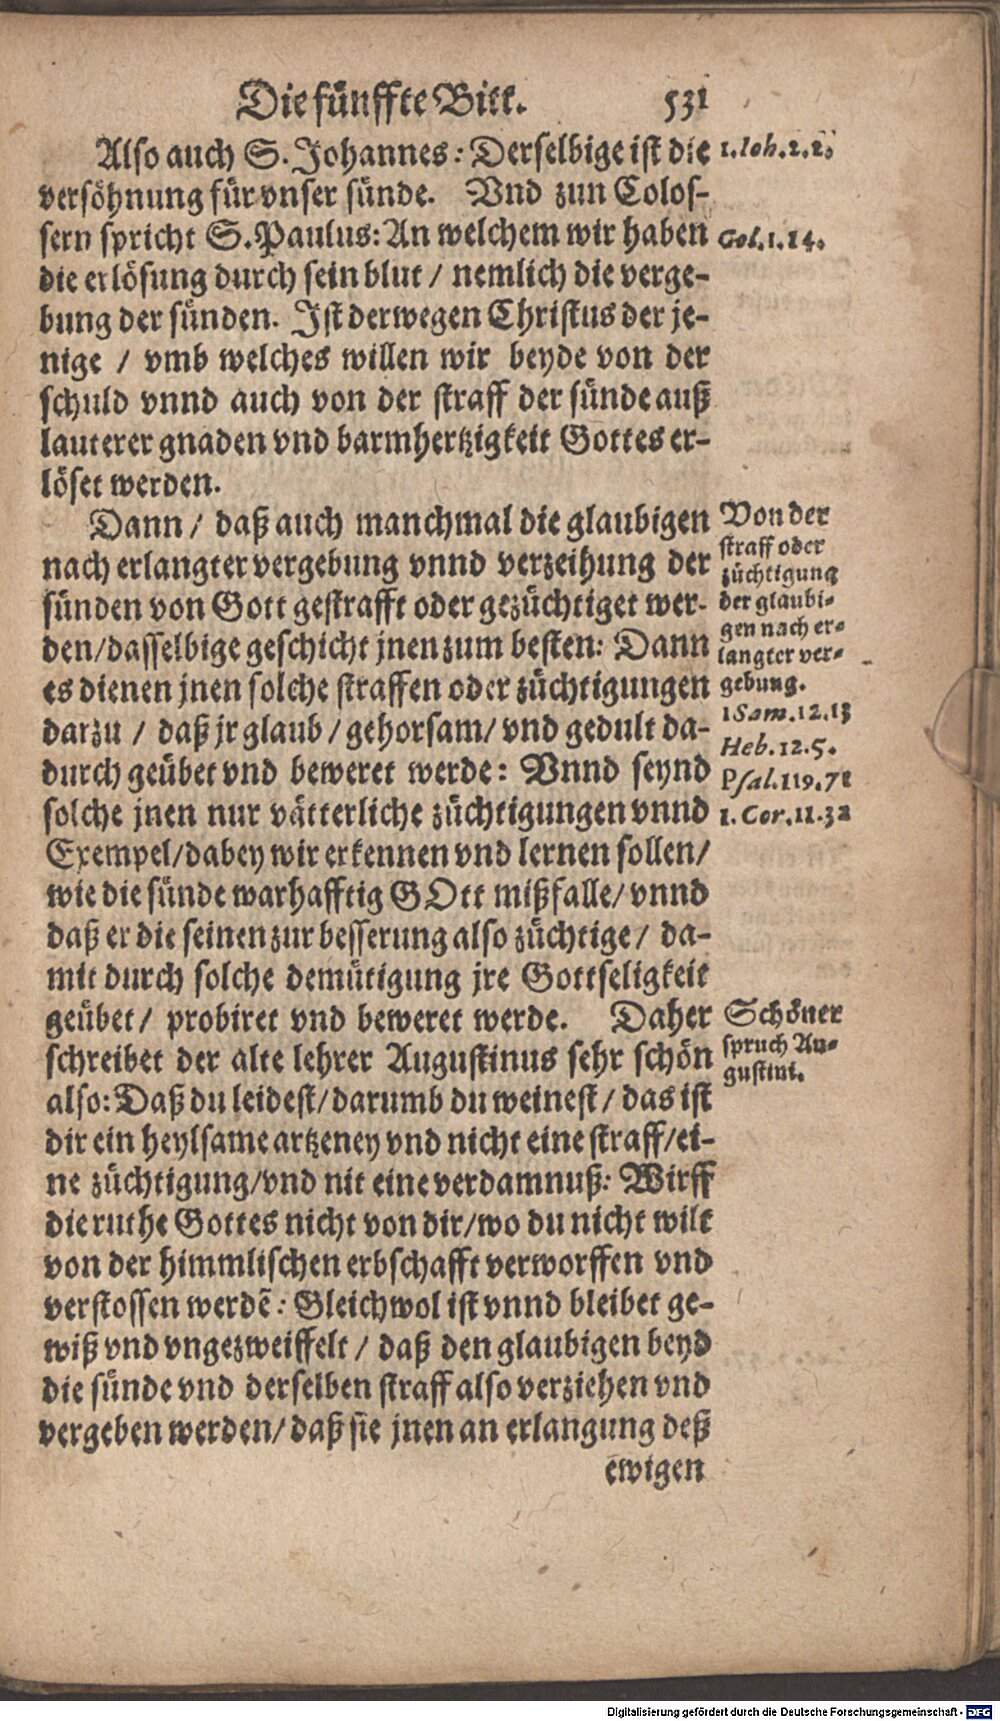 Die fünffte Bitt. 531
Also auch S. Johannes: Derselbige ist die
versöhnung für vnser sünde. Vnd zun Colos-
sern spricht S. Paulus: An welchem wir haben
die erlösung durch sein blut / nemlich die verge-
bung der sünden. Ist derwegen Christus der je-
nige / vmb welches willen wir beyde von der
schuld vnnd auch von der straff der sünde auß
lauterer gnaden vnd barmhertzigkeit Gottes er-
löset werden.
Dann / daß auch manchmal die glaubigen
nach erlangter vergebung vnnd verzeihung der
sünden von Gott gestrafft oder gezüchtiget wer-
den / dasselbige geschicht jnen zum besten: Dann
es dienen jnen solche straffen oder züchtigungen
darzu / daß jr glaub / gehorsam / vnd gedult da-
durch geübet vnd beweret werde: Vnnd seynd
solche jnen nur vätterliche züchtigungen vnnd
Exempel / dabey wir erkennen vnd lernen sollen /
wie die sünde warhafftig GOtt mißfalle / vnnd
daß er die seinen zur besserung also züchtige / da-
mit durch solche demütigung jre Gottseligkeit
geübet / probiret vnd beweret werde. Daher
schreibet der alte lehrer Augustinus sehr schön
also: Daß du leidest / darumb du weinest / das ist
dir ein heylsame artzeney vnd nicht eine straff / ei-
ne züchtigung / vnd nit eine verdamnuß: Wirff
die ruthe Gottes nicht von dir / wo du nicht wilt
von der himmlischen erbschafft verworffen vnd
verstossen werdẽ: Gleichwol ist vnnd bleibet ge-
wiß vnd vngezweiffelt / daß den glaubigen beyd
die sünde vnd derselben straff also verziehen vnd
vergeben werden / daß sie jnen an erlangung deß
ewigen
1. Ioh. 2. 2.
Col. 1. 14.
Von der
straff oder
züchtigung
der glaubi-
gen nach er-
langter ver-
gebung.
1 Sam. 12. 13
Heb. 12. 5.
Psal. 119. 71
1. Cor. 11. 32
Schöner
spruch Au-
gustini.
Digitalisierung gefördert durch die Deutsche Forschungsgemeinschaft - DFG